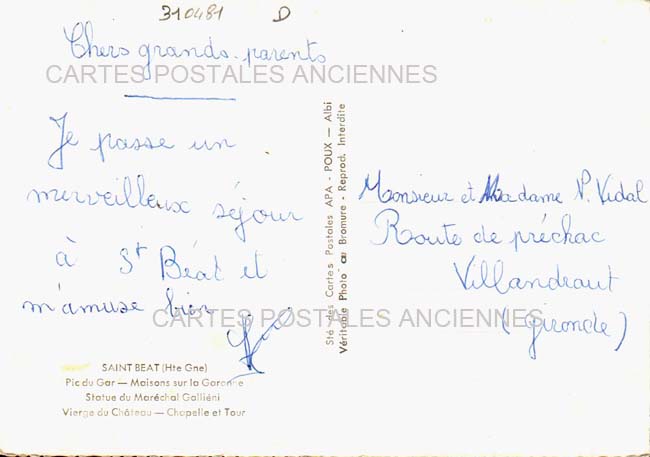 310481 D
Chers grands-parents
CARTES POSTALES ANCIENNES
Je passe un
merveilleux séjour
à St Béat et
m'amuse bien
CARTES POSTALES ANCIENNES
SAINT BEAT (Hte Gne)
Pic du Gar — Maisons sur la Garonne
Statue du Maréchal Galliéni
Vierge du Château — Chapelle et Tour
Sté des Cartes Postales APA - POUX — Albi
Véritable Photo au Bromure - Reprod. Interdite
Monsieur et Madame P. Vidal
Route de préchac
Villandraut
(Gironde)